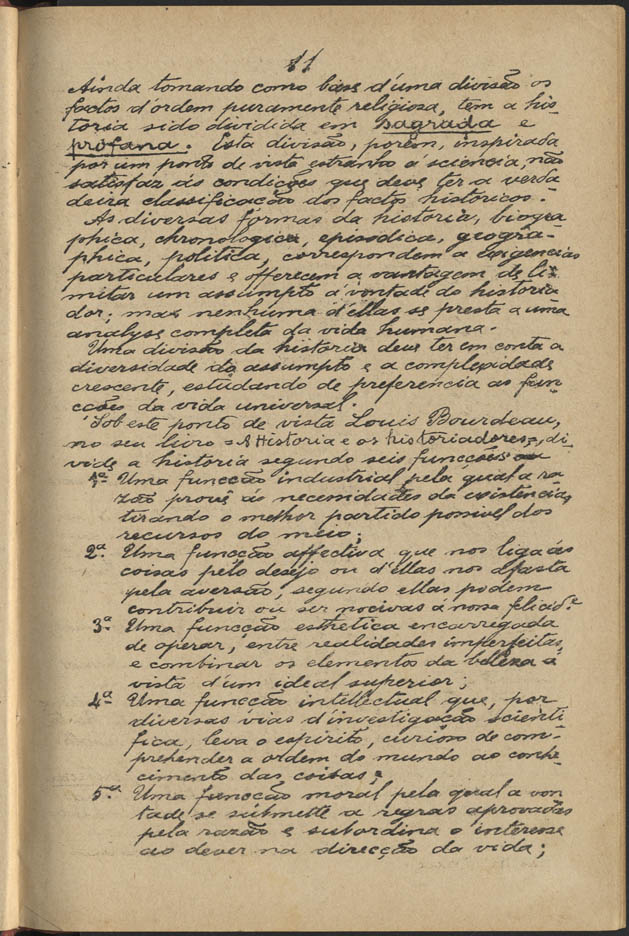 11
Ainda tomando como base d'uma divisão os
factos d'ordem puramente religiosa, tem a his-
toria sido dividida em sagrada e
profana. Esta divisão, porem, inspirada
por um ponto de vista estranho a sciencia, não
satisfaz ás condições que deve ter a verda
deira classificação dos factos historicos.
As diversas fórmas da historia, biogra
phica, chronologica, episodica, geográ-
phica, politica, correspondem a exigencias
particulares e offerecem a vantagem de li-
mitar um assumpto á vontade do historia
dor; mas nenhuma d'ellas se presta a uma
analyse completa da vida humana.
Uma divisão da historia deve ter em conta a
diversidade do assumpto e a complexidade
crescente, estudando de preferencia as fun
cções da vida universal.
Sob este ponto de vista Louis Bourdeau,
no seu livro «A Historia e os historiadores», di-
vide a historia segundo seis funcções
1ª Uma funcção industrial pela qual a ra
zão provê ás necessidades da existencia,
tirando o melhor partido possivel dos
recursos do meio;
2ª Uma funcção affectiva que nos liga ás
coisas pelo desejo ou d'ellas nos afasta
pela aversão, segundo ellas podem
contribuir ou ser nocivas á nossa felicid.e
3ª Uma funcção esthetica encarregada
de operar, entre realidades imperfeitas,
e combinar os elementos da beleza á
vista d'um ideal superior;
4ª Uma funcção intellectual que, por
diversas vias d'investigação scienti
fica, leva o espirito, curioso de com-
prehender a ordem do mundo ao conhe-
cimento das coisas;
5ª Uma funcção moral pela qual a von
tade se submette a regras aprovadas
pela razão e subordina o interesse
ao dever na direcção da vida;